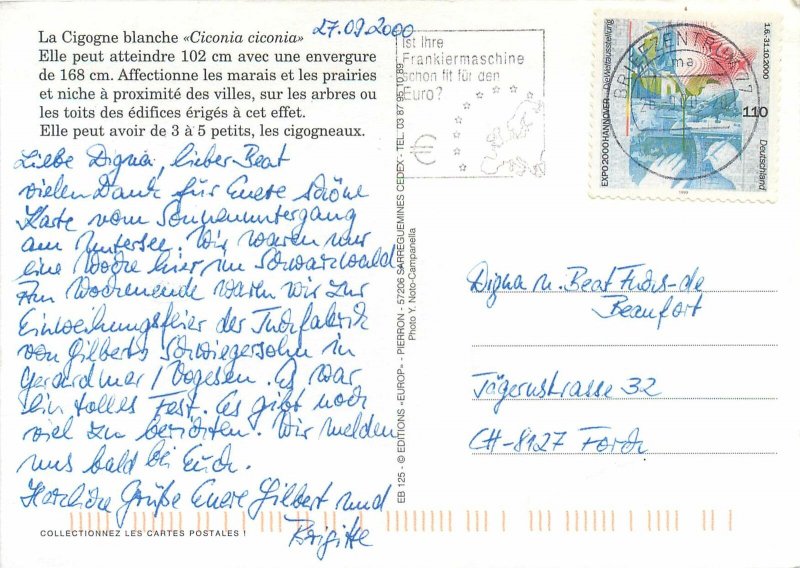 27.09.2000
La Cigogne blanche «Ciconia ciconia»
Elle peut atteindre 102 cm avec une envergure
de 168 cm. Affectionne les marais et les prairies
et niche à proximité des villes, sur les arbres ou
les toits des édifices érigés à cet effet.
Elle peut avoir de 3 à 5 petits, les cigogneaux.
Liebe Digna, lieber Beat
vielen Dank für Euere schöne
Karte vom Sonnenuntergang
am Untersee. Wir waren nur
eine Woche hier im Schwarzwald
Am Wochenende waren wir zur
Einweihungsfeier der Tuchfabrik
von Gilberts Schwiegersohn in
Gerardmer / Vogesen. Es war
ein tolles Fest. Es gibt noch
viel zu berichten. Wir melden
uns bald bei Euch.
Herzliche Grüße Euere Gilbert und
Brigitte
COLLECTIONNEZ LES CARTES POSTALES !
EB 125 - © EDITIONS «EUROP» - PIERRON - 57206 SARREGUEMINES CEDEX - TEL. 03 87 95 10 89
Photo Y. Noto-Campanella
Ist Ihre
Frankiermaschine
schon fit für den
Euro?
€
BRIEFZENTRUM 77
ma
EXPO 2000 HANNOVER Die Weltausstellung
1.6.-31.10.2000
110
Deutschland
1999
Digna u. Beat Fuchs-de
Beaufort
Jägernstrasse 32
CH-8127 Forch